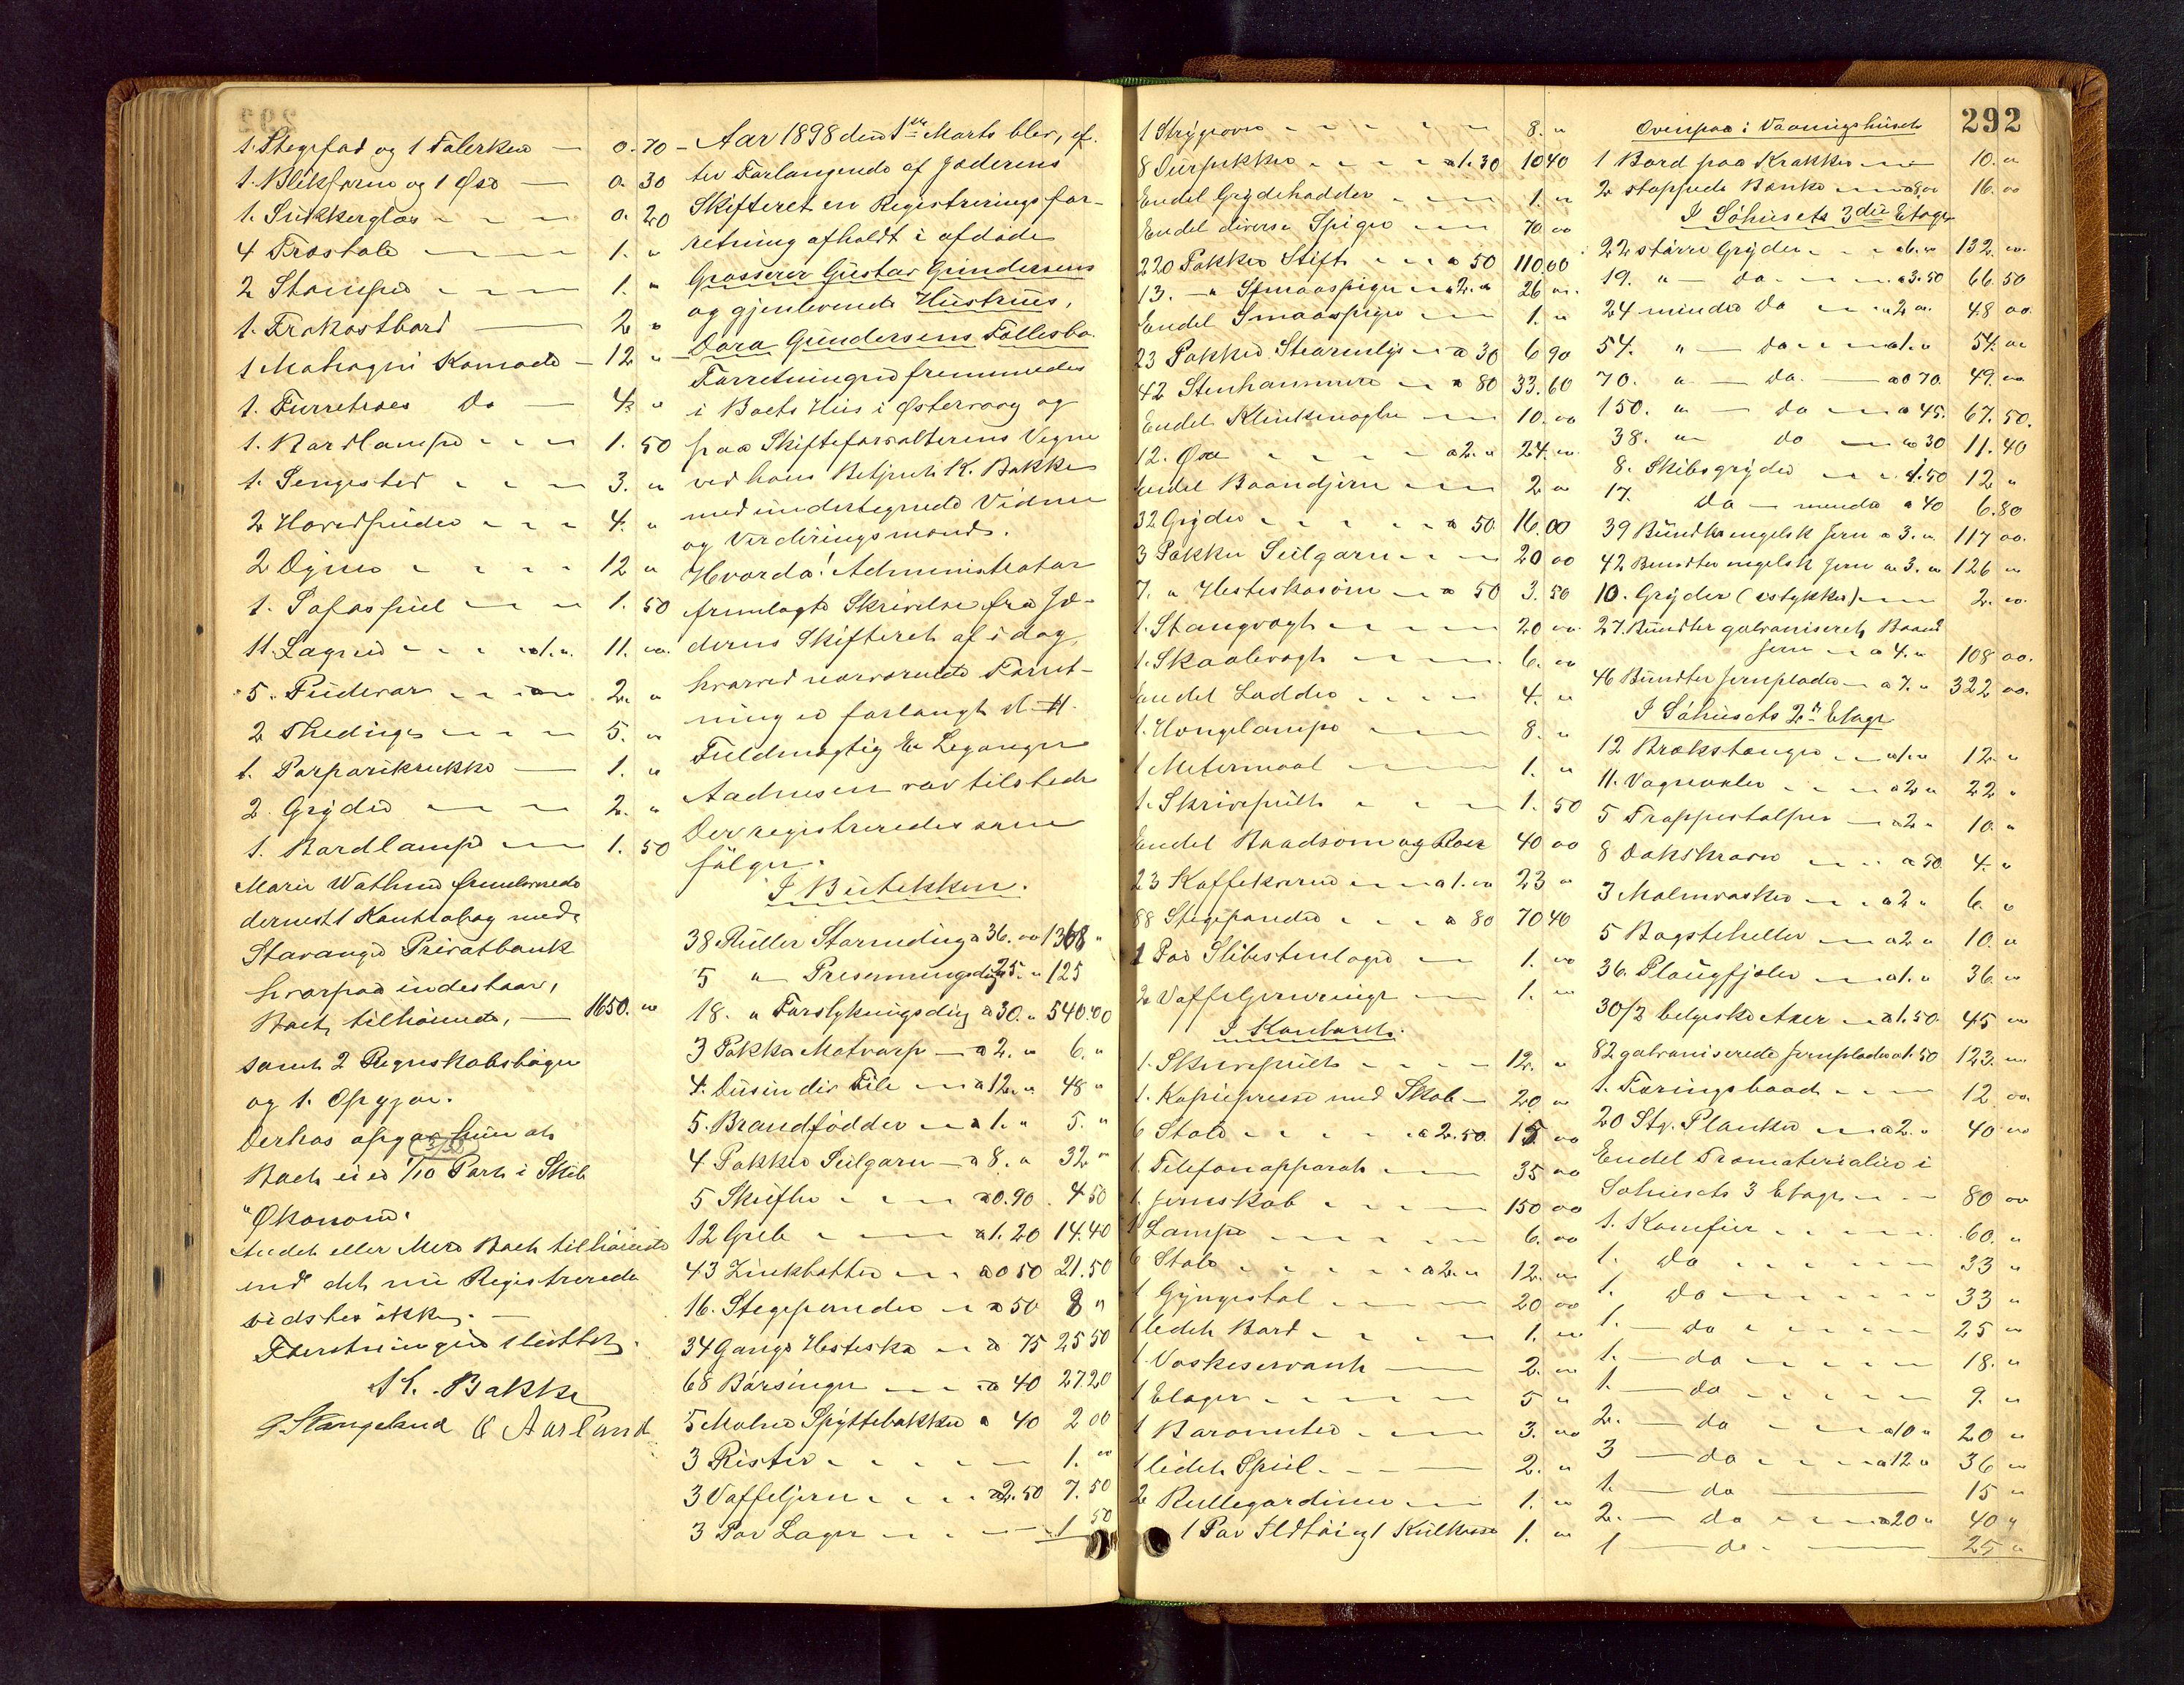 1. Stegefad og 1 Talerken — 0.70
1. Blikform og 1 Øse — 0.30
1. Sukkerglas 0.20
4 Træstole 1. "
2 Stamper 1. "
1. Frokostbord 2 "
1 Mahogni Komode — 12 "
1. Furretræes Do — 4. "
1. Bordlampe 1.50
1. Sengested 3. "
2 Hovedpuder 4. "
2 Dyner 12 "
1. Sofaspüel 1.50
11. Lagner a 1. " 11. "
5. Püdevar 2. "
2. "
1. 1. "
2. Grÿder 2. "
1. Bordlampe 1.50
Marie Wathne fremlevnede
dernest 1 Kontrabog med
Stavanger Privatbank
hvorpaa indestaar,
Boet tilhørende, — 1650. "
samt 2 Regnskabsbøger
og 1. Opgjør.
Derhos opgav hün at
Boet eier 1/10 Part i Skib
"Økonom"
Andet eller Mere Boet tilhørende
end det nü Registrerede
vidstes ikke. —
Forretningen slüttet.
K. Bakke
P. Stangeland O Aarland
— Aar 1898 den 1ste Marts blev, ef-
ter Forlangende af Jæderens
Skifteret en Registreringsfor-
retning afholdt i afdøde
Grosserer Güstav Gündersens
og gjenlevende Hüstrües,
Dora Gündersens Fællesbo.
Forretningen fremmedes
i Boets Hüs i Østervaag og
paa Skifteforvalterens Vegne
ved hans Betjent K. Bakke
med undertegnede Vidner
og Vürderingsmænd.
Hvorda! Administrator
fremlagte Skrivelse fra Jæ-
derens Skifteret af i dag,
hvorved nærværende Forret-
ning er forlangt d. H.
Füldmægtig E. Legangen
Aadnesen var tilstede
Der registreredes som
følger.
I Bütikken.
38 Rüller Stormdüg a 36. 00 1368 "
5 " Presenningsdüg 25. " 125
18. " Forslykningsdüg a 30. " 540.00
3 Pakker Motvarp — a 2. " 6. "
4. Düsin div File a 12. " 48 "
5. Brandfødder a 1. " 5. "
4 Pakker Seilgarn — a 8. " 32 "
5 Skufler a 0.90 4 50
12 Greb a 1.20 14.40
43 Zinkbøtter a 0 50 21.50
16. Stegepander a 50 8 "
34 Gange Hestesko a 75 25 50
68 Børsinger a 40 27.20
5 Malne Spÿttebakker a 40 2 00
3 Rister 1. "
3 Vaffeljern a 2.50 7.50
3 Par Lager 1 50
292
1 Strÿgeovn 8. "
8 Dürpikker a 1.30 10 40
Endel Grÿdehadder 1. "
Endel diverse Spiger 70 00
220 Pakker Stift a 50 110.00
13. — " Smaaspiger a 2. " 26 "
Endel Smaaspiger 1. "
23 Pakker Stearinlÿs a 30 6 90
42 Stenhammere a 80 33.60
Endel Klinknagler 10. 00
12. Øxe a 2. " 24. "
Endel Baandjern 2 "
32 Grÿder a 50 16.00
3 Pakker Seilgarn 20 00
7. " Hesteskosøm a 50 3.50
1. Stangvægt 20 "
1. Skaalvægt 6. "
Endel Lodder 4. "
1. Hængelampe 8. "
1 Metermaal 1. "
1. Skrivepült 1. 50
Endel Baadsøm og Roer 40 00
23 Kaffekværne a 1. " 23 "
88 Stegepander a 80 70 40
1 Par Slibestenlager 1. "
2 Vaffeljernringe 1. "
I Kontoret.
1. Skrivepült 12. "
1. Kopiepresse med Skab — 20 "
6 Stole a 2.50 15 00
1. Telefonapparat 35 00
1. Jernskab 150 00
1 Lampe 6. 00
6 Stole a 2. " 12. "
1 Gÿngestol 20 00
1 lidet Bord 1. "
1. Vaskeservant 2. "
1 Etager 5 "
1 Barometer 3. "
1 lidet Speil 2. "
2 Rüllegardiner 1. "
1 Par Ildtøi og 1 Külkasse 1. "
Ovenpaa i Vaaningshüset
1 Bord paa Krakker 10. "
2 stoppede Bænke a 8 00 16. 00
I Søhüsets 3die Etage
22 større Grÿder a 6. " 132. "
19. " — Do a 3.50 66.50
24 mindre Do a 2 " 48 00
54. " — Do a 1. " 54. "
70. " — Do — a 0 70. 49. "
150. " — Do a 45. 67.50.
38. " Do a 30 11.40
8. Skibsgrÿder 1.50 12 "
17. Do — mindre a 40 6.80
39 Bündter engelsk Jern a 3. " 117 00.
42 Bündter engelsk Jern a 3. " 126 "
10. Grÿder (istykker) 2. "
27. Bündter galvaniseret Baand
Jern a 4. " 108 00.
46 Bündter Jernplader — a 7. " 322 00.
I Søhüsets 2den Etage
12 Brækstænger a 1. " 12. "
11. Vognaxler a 2 " 22 "
5 Trappestolper a 2. " 10. "
8 Dækskraver a 50. 4. "
3 Malmvasker a 2 " 6. "
5 Bagsteheller a 2 " 10. "
36. Plougfjøler a 1. " 36. "
30/2 belgiske Axer a 1.50. 45 "
82 galvaniserede Jernplader a 1.50 123. "
1. Færingsbaad 12 00.
20 Stÿ. Planker a 2. " 40 "
Endel Træmaterialier i
Søhüsets 3 Etage 80 00
1. Komfür 60. "
1. Do 33 "
1. Do 33 "
1. — Do 25 "
1. — Do 18. "
1. — Do 9. "
2. — Do a 10 " 20 "
3 — Do a 12 " 36 "
1. — Do 15 "
2. — Do a 20 " 40 "
1 — Do 25 "